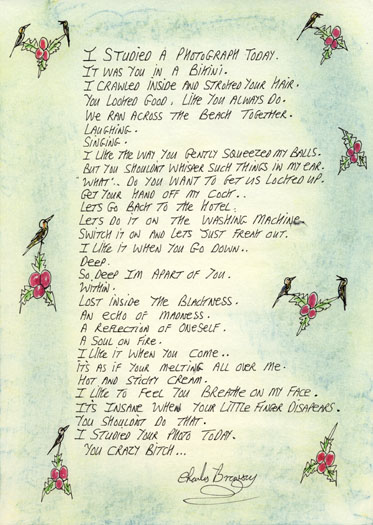 I STUDIED A PHOTOGRAPH TODAY.
IT WAS YOU IN A BIKINI.
I CRAWLED INSIDE AND STROKED YOUR HAIR.
YOU LOOKED GOOD, LIKE YOU ALWAYS DO.
WE RAN ACROSS THE BEACH TOGETHER.
LAUGHING.
SINGING.
I LIKE THE WAY YOU GENTLY SQUEEZED MY BALLS.
BUT YOU SHOULDN'T WHISPER SUCH THINGS IN MY EAR.
"WHAT".. DO YOU WANT TO GET US LOCKED UP.
GET YOUR HAND OFF MY COCK..
LETS GO BACK TO THE HOTEL.
LETS DO IT ON THE WASHING MACHINE
SWITCH IT ON AND LETS JUST FREAK OUT.
I LIKE IT WHEN YOU GO DOWN..
DEEP.
SO, DEEP IM APART OF YOU.
WITHIN.
LOST INSIDE THE BLACKNESS.
AN ECHO OF MADNESS.
A REFLECTION OF ONESELF.
A SOUL ON FIRE.
I LIKE IT WHEN YOU COME..
IT'S AS IF YOUR MELTING ALL OVER ME.
HOT AND STICKY CREAM.
I LIKE TO FEEL YOU BREATHE ON MY FACE.
IT'S INSANE WHEN YOUR LITTLE FINGER DISAPEARS.
YOU SHOULDN'T DO THAT.
I STUDIED YOUR PHOTO TODAY.
YOU CRAZY BITCH...
Charles